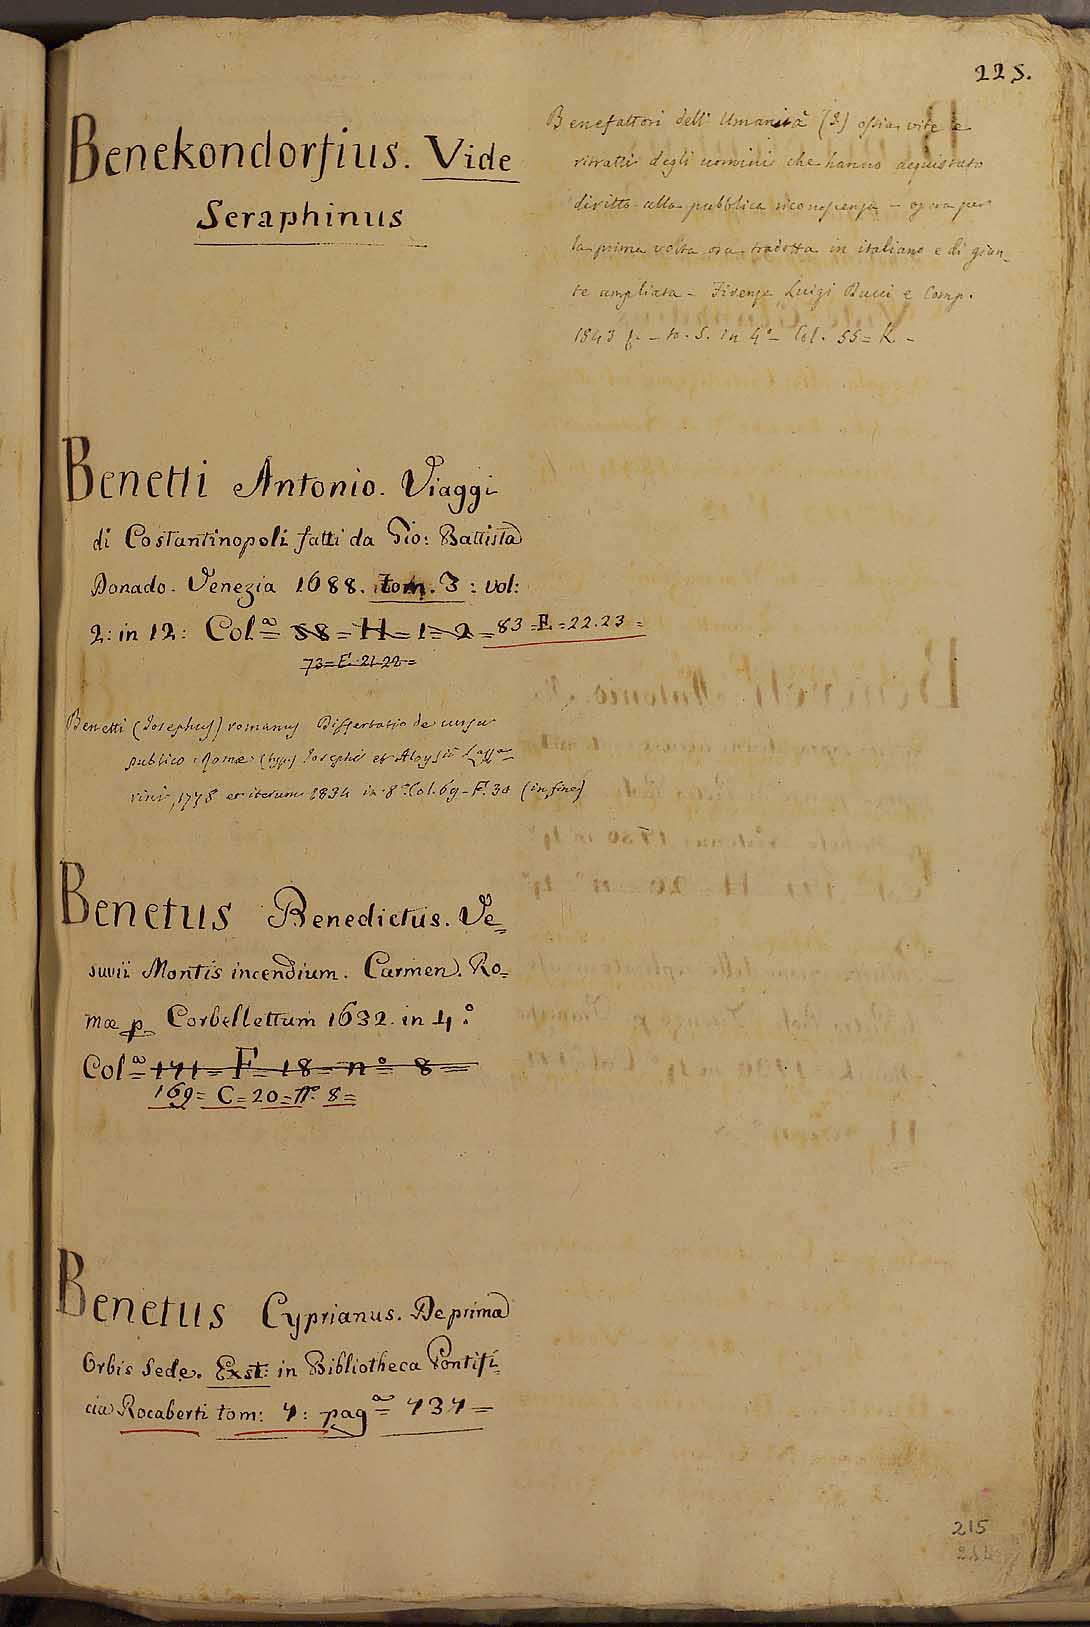 225.
Benekondorfius. Vide
Seraphinus
Benetti Antonio. Viaggi
di Costantinopoli fatti da Gio: Battista
Donado. Venezia 1688. tom. 3 : vol:
2: in 12: Col.ª = 58 = H = 1 = 2 = 83 = E = 22.23 =
73 = E. 21-22 =
Benetti (Josephus) romanus Dissertatio de cursu
publico Romæ (typ.) Josephi et Aloysii Lazza-
rini, 1778 et iterum 1834 in 8º Col. 69 - F. 30 (in fine)
Benetus Benedictus. Ve=
suvii Montis incendium. Carmen. Ro=
mæ p. Corbellettum 1632. in 4.º
Col.ª = 171 = F = 18 = nº = 8 =
169 = C = 20 = nº. 8 =
Benetus Cyprianus. De prima
Orbis Sede. Exst: in Bibliotheca Pontifi=
cia Rocaberti tom: 7: pag.ª = 737 =
Benefattori dell' Umanità ossia vite e
ritratti degli uomini che hanno acquistato
diritto alla pubblica riconoscenza - opera per
la prima volta ora tradotta in italiano e di giun-
te ampliata - Firenze Luigi Ducci e Comp.
1843 - to. 5. in 4º - Col. 55 = K -
215